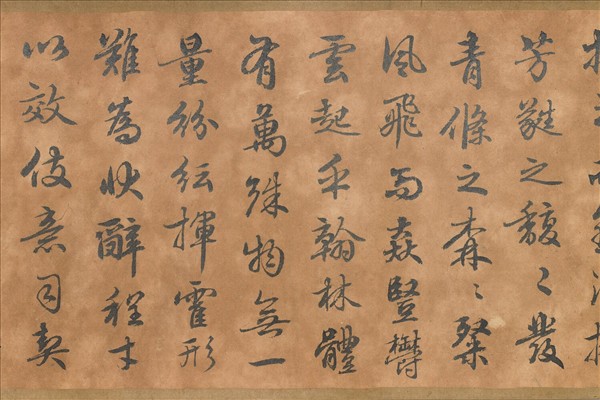 芳蕤之馥〻發
青條之森〻粲
風飛而猋豎鬱
雲起乎翰林體
有萬殊物無一
量紛紜揮霍形
難為狀辭程才
以效伎意司契